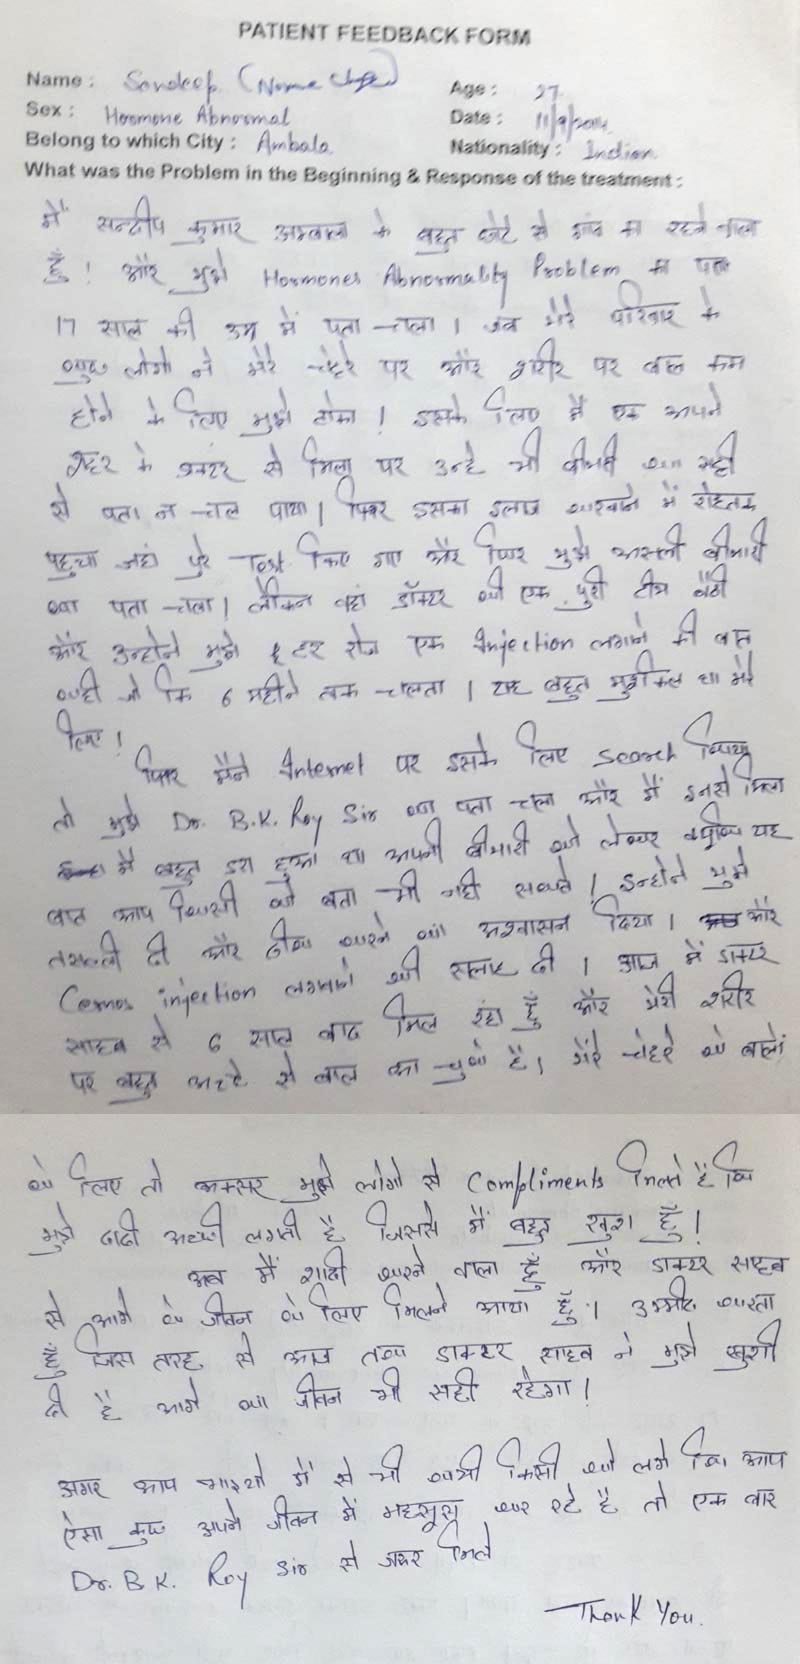 PATIENT FEEDBACK FORM
Name : Sandeep (Name Change)
Age : 27
Sex : Hormone Abnormal
Date : 11/9/2014
Belong to which City : Ambala
Nationality : Indian
What was the Problem in the Beginning & Response of the treatment :
मैं सन्दीप कुमार अम्बाला के बहुत छोटे से गांव का रहने वाला
हुँ ! और मुझे Hormones Abnormality Problem का पता
17 साल की उम्र में पता चला । जब मेरे परिवार के
कुछ लोगो ने मेरे चेहरे पर और शरीर पर बाल कम
होने के लिए मुझे टोका ! इसके लिए मैं एक अपने
शहर के डाक्टर से मिला पर उन्हे भी बीमारी का सही
से पता न चल पाया । फिर इसका इलाज करवाने में रोहतक
पहुचा जहां पुरे Test किए गए और फिर मुझे असली बीमारी
का पता चला । लेकिन वहां डॉक्टर की एक पुरी टीम बैठी
और उन्होने मुझे हर रोज एक Injection लगाने की बात
कही जो कि 6 महीने तक चलता । यह बहुत मुश्किल था मेरे
लिए !
फिर मैंने Internet पर इसके लिए Search किया
तो मुझे Dr. B.K. Roy Sir का पता चला और मैं इनसे मिला
मैं बहुत डरा हुआ था अपनी बीमारी को लेकर क्युकि यह
बात आप किसी को बता भी नही सकते ! इन्होने मुझे
तसल्ली दी और ठीक करने का अश्वासन दिया । और
Cernos injection लगवाने की सलाह दी । आज में डाक्टर
साहब से 6 साल बाद मिल रहा हुँ और मेरी शरीर
पर बहुत अच्छे से बाल आ चुके है । मेरे चेहरे के बालों
के लिए तो अक्सर मुझे लोगो से Compliments मिलते है कि
मुझे दाढी अच्छी लगती है जिससे मैं बहुत खुश हुँ !
अब मैं शादी करने वाला हुँ और डाक्टर साहब
से आगे के जीवन के लिए मिलने आया हुँ । उम्मीद करता
हुँ जिस तरह से आज तक डाक्टर साहब ने मुझे खुशी
दी है आगे का जीवन भी सही रहेगा !
अगर आप भाइयो में से भी कभी किसी को लगे कि आप
ऐसा कुछ अपने जीवन में महसूस कर रहे है तो एक बार
Dr. B. K. Roy Sir से जरूर मिले
Thank You.